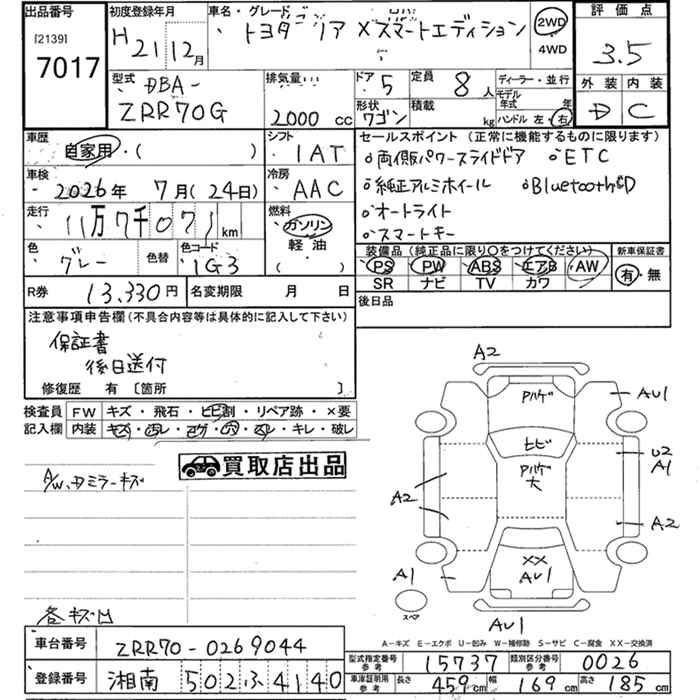 出品番号
[2139]
7017
初度登録年月
H 21年 12月
車名・グレード
トヨタ ノア X スマートエディション
2WD
4WD
評価点
3.5
外装 内装
D C
型式
DBA-
ZRR70G
排気量
2000 cc
ドア
5
定員
8人
形状
ワゴン
積載
kg
ディーラー・並行
モデル年式 年
ハンドル 左・右
車歴
自家用・( )
シフト
IAT
車検
2026年 7月(24日)
冷房
AAC
走行
11万7千071km
燃料
ガソリン
軽油
( )
色
グレー
色替
色コード
1G3
セールスポイント(正常に機能するものに限ります)
両側パワースライドドア ETC
純正アルミホイール Bluetooth
オートライト
スマートキー
装備品(純正品に限り○をつけてください)
PS PW ABS エアB AW
SR ナビ TV カワ
新車保証書
有・無
R券 13,330円
名変期限 月 日
後日品
注意事項申告欄(不具合内容等は具体的に記入して下さい)
保証書
後日送付
修復歴 有〔箇所 〕
検査員記入欄
FW キズ・飛石・ヒビ割・リペア跡・×要
内装 キズ・ ・コゲ・ ・ ・キレ・破レ
買取店出品
A/W、Dミラーキズ
各キズ凹
A2
Pハゲ
AU1
ヒビ
U2
A1
Pハゲ
大
A2
A2
A1
XX
AU1
スペア
AU1
A-キズ E-エクボ U-凹み W-補修跡 S-サビ C-腐食 XX-交換済
車台番号 ZRR70-0269044
登録番号 湘南 502ふ4140
型式指定番号 参考 15737
類別区分番号 参考 0026
車庫証明用 参考 長さ 459cm 幅 169cm 高さ 185cm